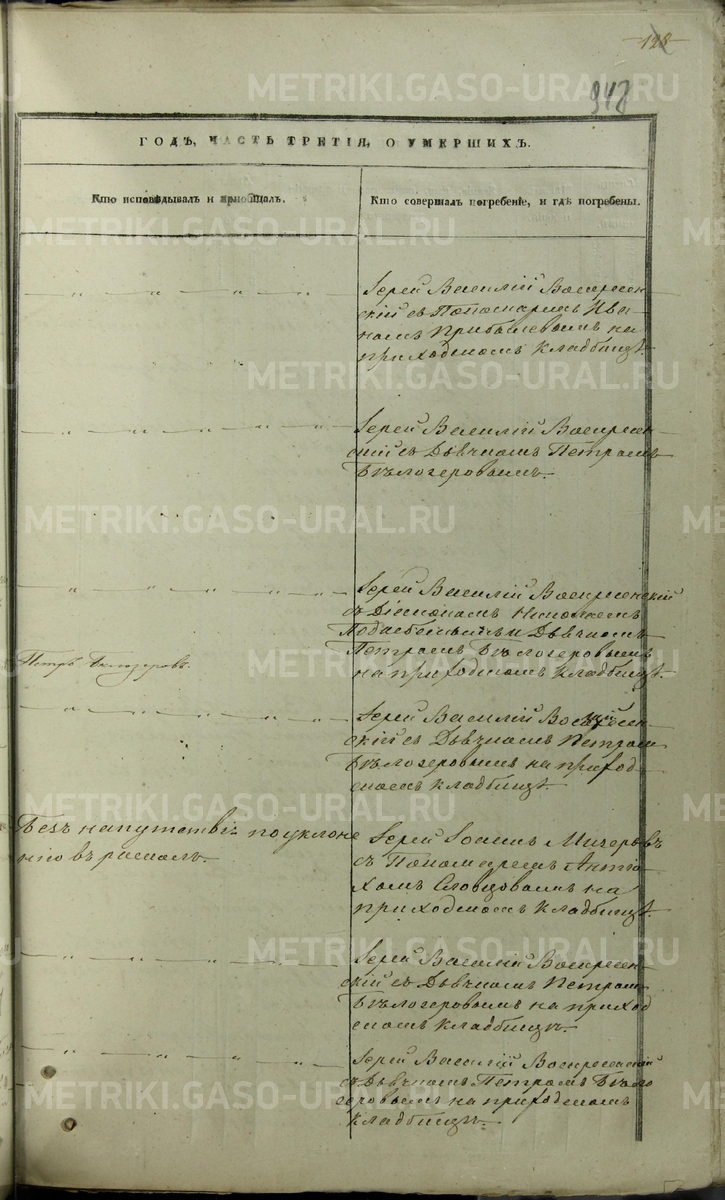 128
942
ГОДЪ, ЧАСТЬ ТРЕТІЯ, О УМЕРШИХЪ.
Кто исповѣдывалъ и пріобщалъ.
Кто совершалъ погребеніе, и гдѣ погребены.
Іерей Василій Воскресен-
скій съ Пономаремъ Ива-
номъ Прибылевымъ на
приходскомъ кладбищѣ.
Іерей Василій Воскресен-
скій съ Дьячкомъ Петромъ
Бѣлозеровымъ.
Іерей Василій Воскресенскій
съ Діакономъ Николаемъ
и Дьячкомъ
Петромъ Бѣлозеровымъ
на приходскомъ кладбищѣ.
Петръ Бѣлозеровъ.
Іерей Василій Воскресен-
скій съ Дьячкомъ Петромъ
Бѣлозеровымъ на приход-
скомъ кладбищѣ.
Безъ напутствія по уклоне
нію въ расколъ.
Іерей Іоаннъ Мичеровъ
съ Пономаремъ Антіо-
хомъ Словцовымъ на
приходскомъ кладбищѣ.
Іерей Василій Воскресен-
скій съ Дьячкомъ Петромъ
Бѣлозеровымъ на приход
скомъ кладбищѣ.
Іерей Василій Воскресенскій
съ Дьячкомъ Петромъ Бѣло
зеровымъ на приходскомъ
кладбищѣ.
METRIKI.GASO-URAL.RU